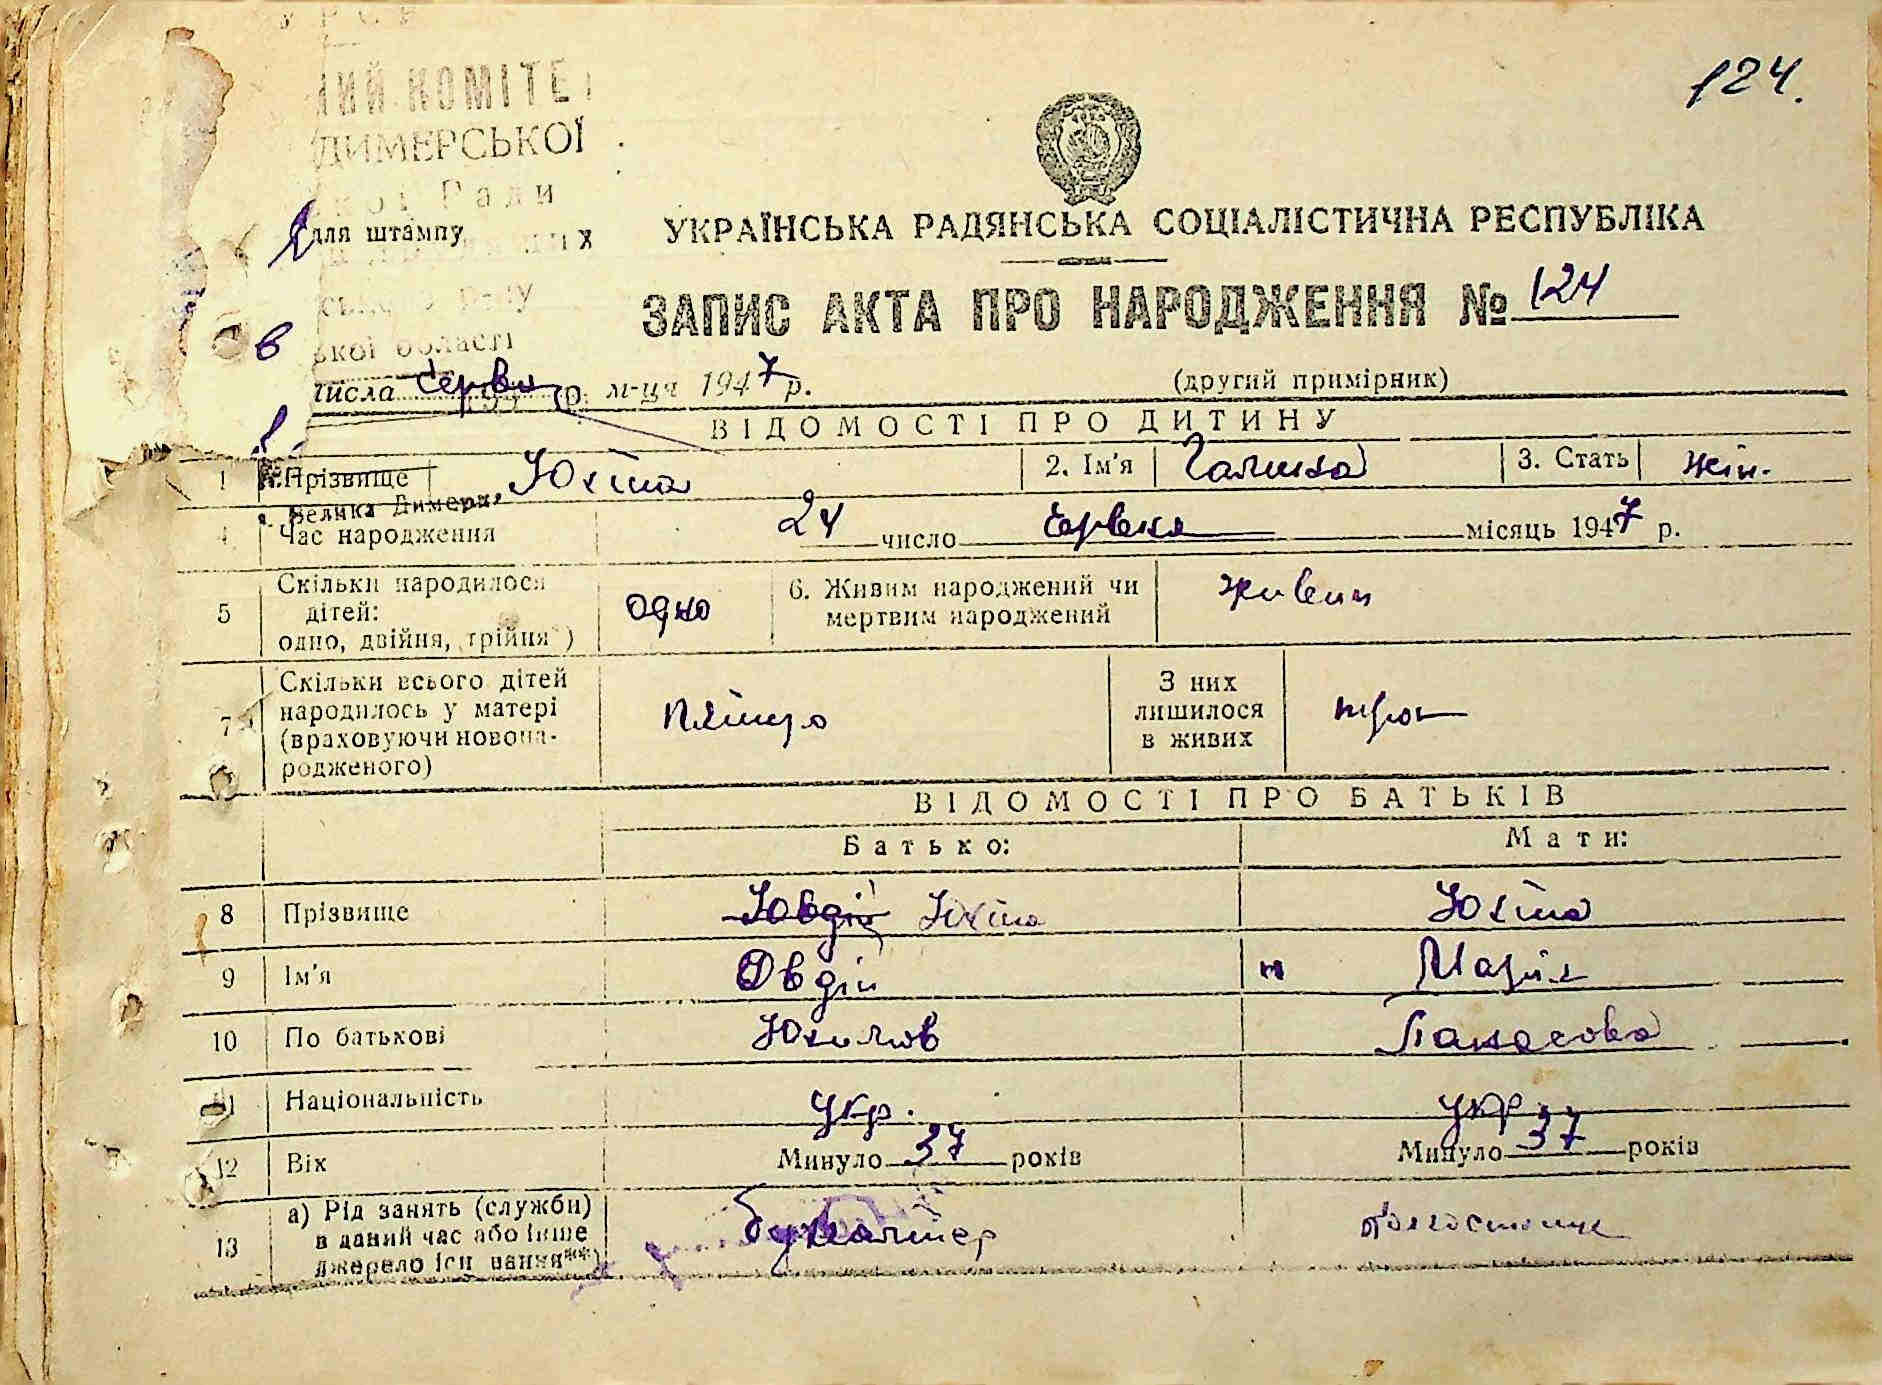 124.
КОМІТЕ
ДИМЕРСЬКОЇ
Ради
для штампу
УКРАЇНСЬКА РАДЯНСЬКА СОЦІАЛІСТИЧНА РЕСПУБЛІКА
ЗАПИС АКТА ПРО НАРОДЖЕННЯ № 124
області
числа червня м-ця 1947 р.
(другий примірник)
ВІДОМОСТІ ПРО ДИТИНУ
1 Прізвище Юхіма 2. Ім'я Галина 3. Стать жін.
Велика Димерка
4 Час народження 24 число червня місяць 1947 р.
5 Скільки народилося дітей: одно, двійня, трійня*) одно 6. Живим народжений чи мертвим народжений живим
7 Скільки всього дітей народилось у матері (враховуючи новона-родженого) п'ятеро З них лишилося в живих троє
ВІДОМОСТІ ПРО БАТЬКІВ
Батько: Мати:
8 Прізвище Юхіма Юхіма
9 Ім'я Овдій Марія
10 По батькові Юхимов Панасова
11 Національність укр. укр.
12 Вік Минуло 37 років Минуло 37 років
13 а) Рід занять (служби) в даний час або інше джерело існування**) бухгалтер